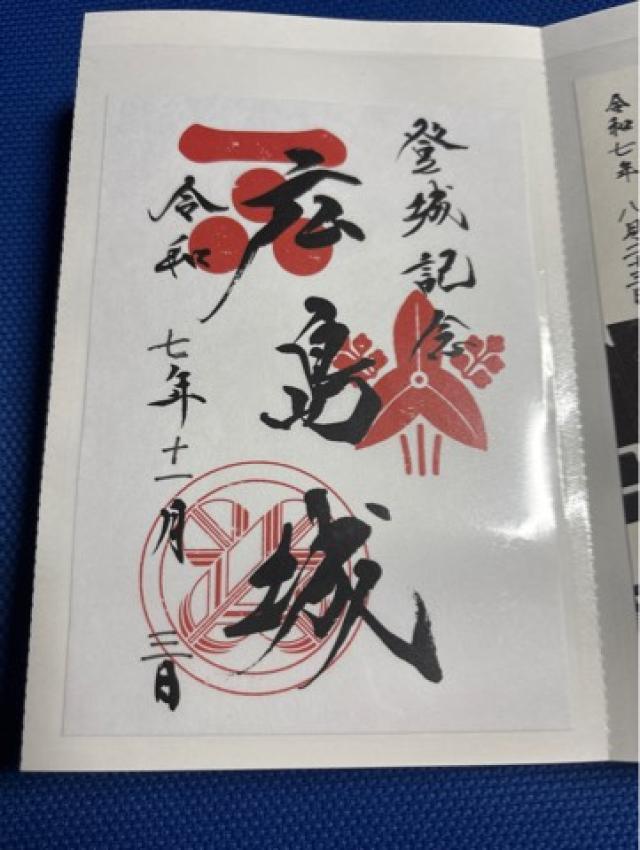 登城記念
広島城
令和七年十一月三日
令和七年 八月二十三日